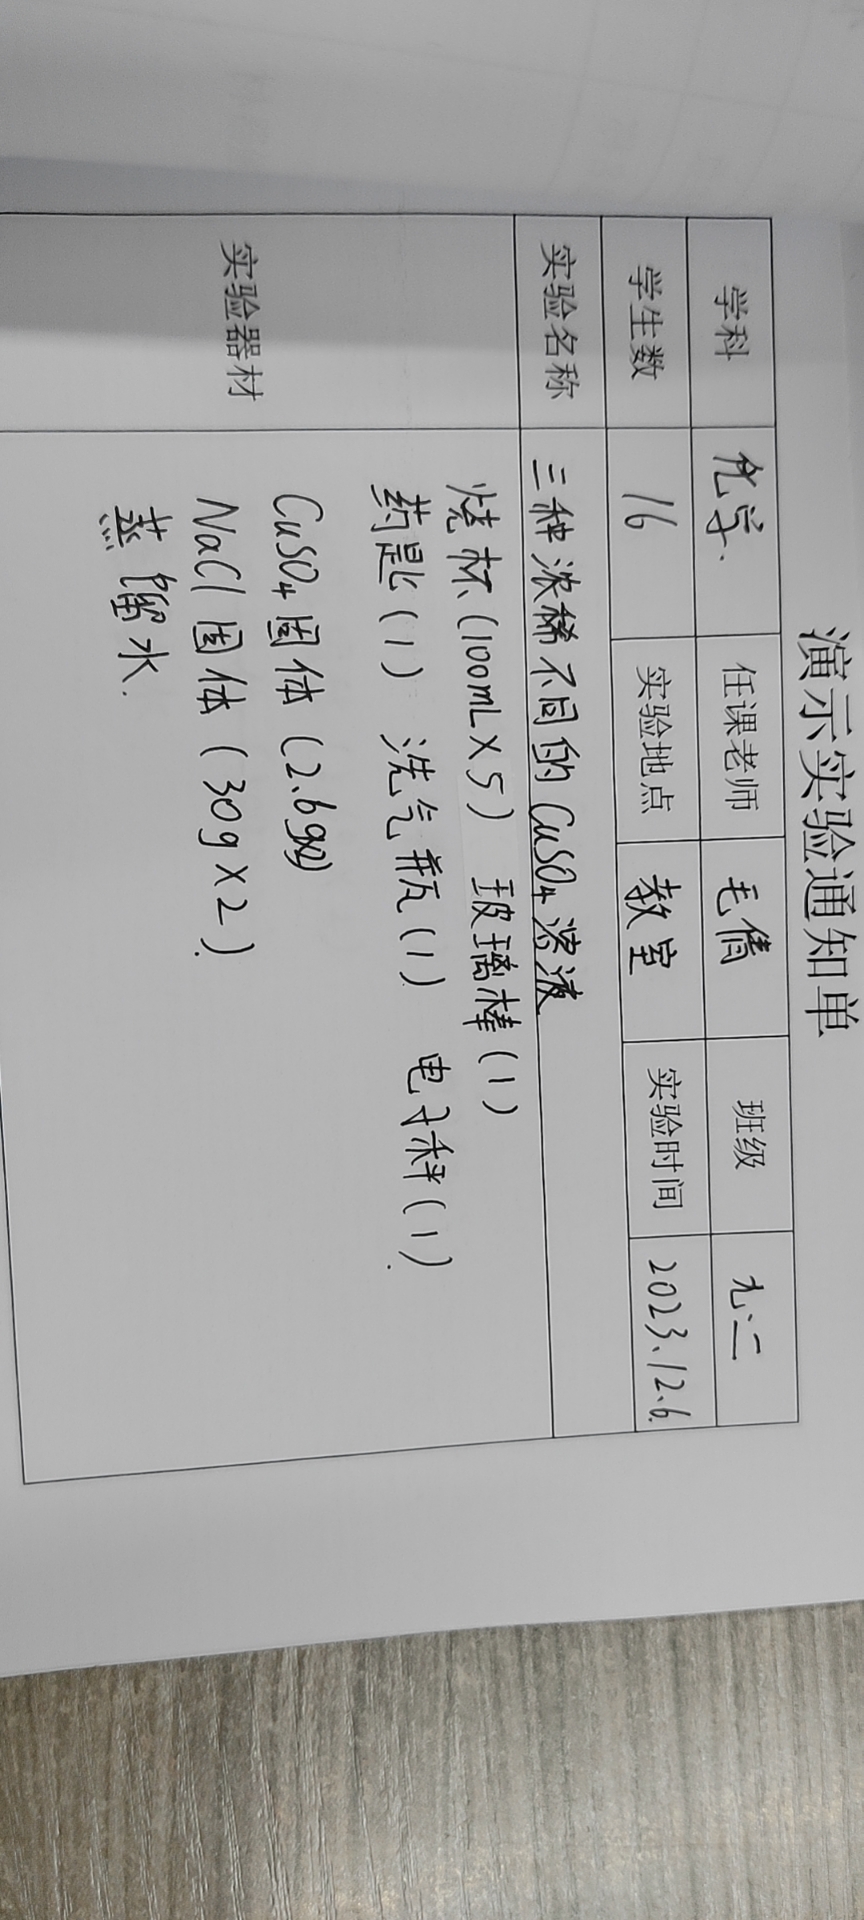 演示实验通知单
学科 化学 任课老师 毛倩 班级 九.二
学生数 16 实验地点 教室 实验时间 2023.12.6.
实验名称 三种浓稀不同的CuSO4溶液
实验器材
烧杯(100mL×5) 玻璃棒(1)
药匙(1) 洗气瓶(1) 电子秤(1).
CuSO4固体(2.6g)
NaCl固体(30g×2).
蒸馏水.